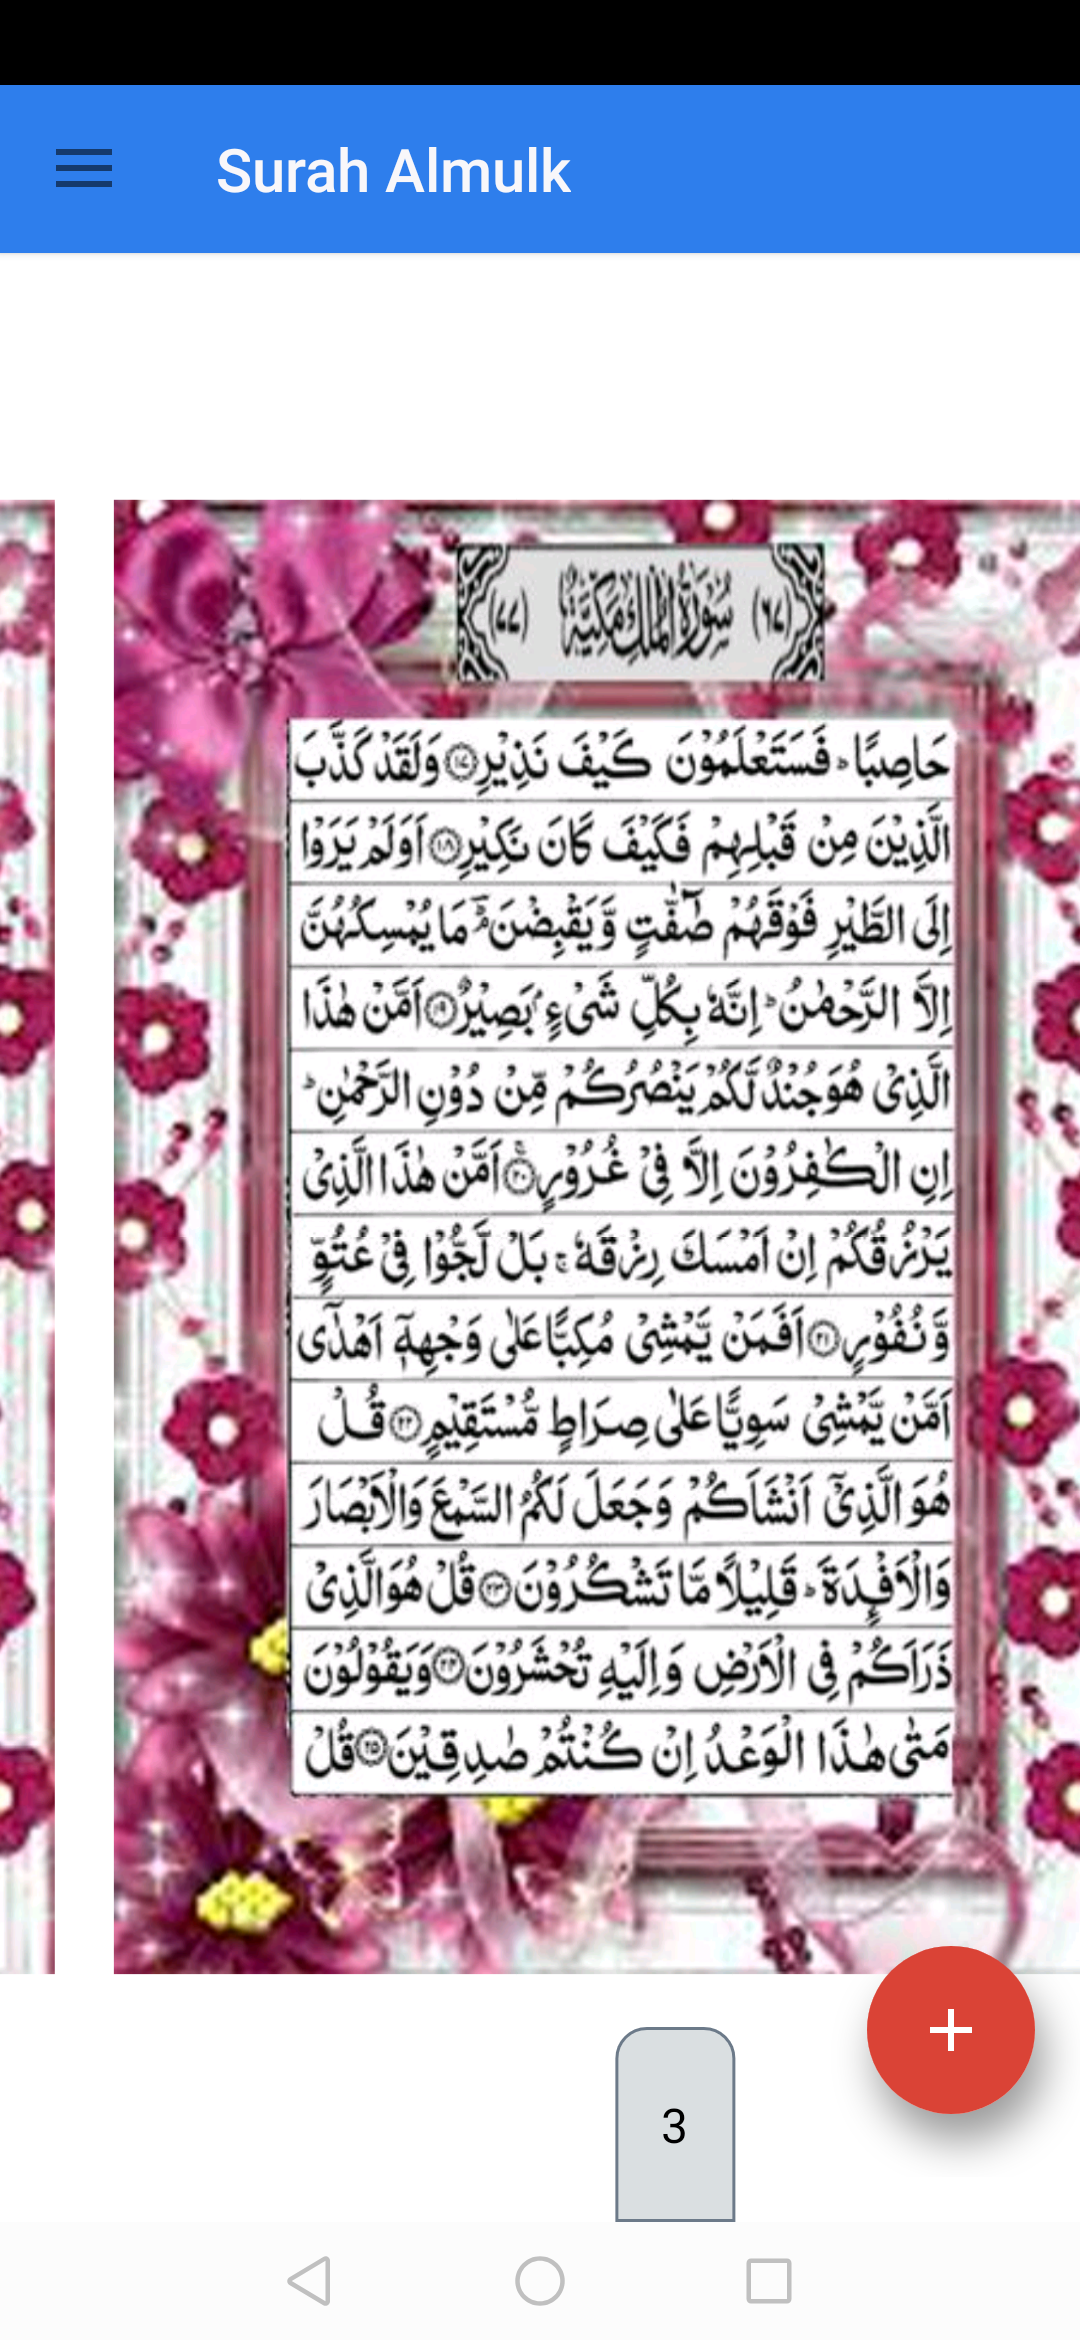 Surah Almulk
(٦٧) سُوْرَةُ الْمُلْكِ مَكِّيَّةٌ (٧٧)
حَاصِبًا ؕ فَسَتَعْلَمُوْنَ كَيْفَ نَذِيْرِ ﴿۱۷﴾ وَلَقَدْ كَذَّبَ
الَّذِيْنَ مِنْ قَبْلِهِمْ فَكَيْفَ كَانَ نَكِيْرِ ﴿۱۸﴾ اَوَلَمْ يَرَوْا
اِلَى الطَّيْرِ فَوْقَهُمْ صٰٓفّٰتٍ وَّيَقْبِضْنَ ؔۘ مَا يُمْسِكُهُنَّ
اِلَّا الرَّحْمٰنُ ؕ اِنَّهٗ بِكُلِّ شَىْءٍۭ بَصِيْرٌ ﴿۱۹﴾ اَمَّنْ هٰذَا
الَّذِىْ هُوَ جُنْدٌ لَّكُمْ يَنْصُرُكُمْ مِّنْ دُوْنِ الرَّحْمٰنِ ؕ
اِنِ الْكٰفِرُوْنَ اِلَّا فِىْ غُرُوْرٍ ﴿۲۰﴾ۚ اَمَّنْ هٰذَا الَّذِىْ
يَرْزُقُكُمْ اِنْ اَمْسَكَ رِزْقَهٗ ۚ بَلْ لَّجُّوْا فِىْ عُتُوٍّ
وَّنُفُوْرٍ ﴿۲۱﴾ اَفَمَنْ يَّمْشِىْ مُكِبًّا عَلٰى وَجْهِهٖۤ اَهْدٰٓى
اَمَّنْ يَّمْشِىْ سَوِيًّا عَلٰى صِرَاطٍ مُّسْتَقِيْمٍ ﴿۲۲﴾ قُلْ
هُوَ الَّذِىْۤ اَنْشَاَكُمْ وَجَعَلَ لَكُمُ السَّمْعَ وَالْاَبْصَارَ
وَالْاَفْـِٕدَةَ ؕ قَلِيْلًا مَّا تَشْكُرُوْنَ ﴿۲۳﴾ قُلْ هُوَ الَّذِىْ
ذَرَاَكُمْ فِى الْاَرْضِ وَاِلَيْهِ تُحْشَرُوْنَ ﴿۲۴﴾ وَيَقُوْلُوْنَ
مَتٰى هٰذَا الْوَعْدُ اِنْ كُنْتُمْ صٰدِقِيْنَ ﴿۲۵﴾ قُلْ
3